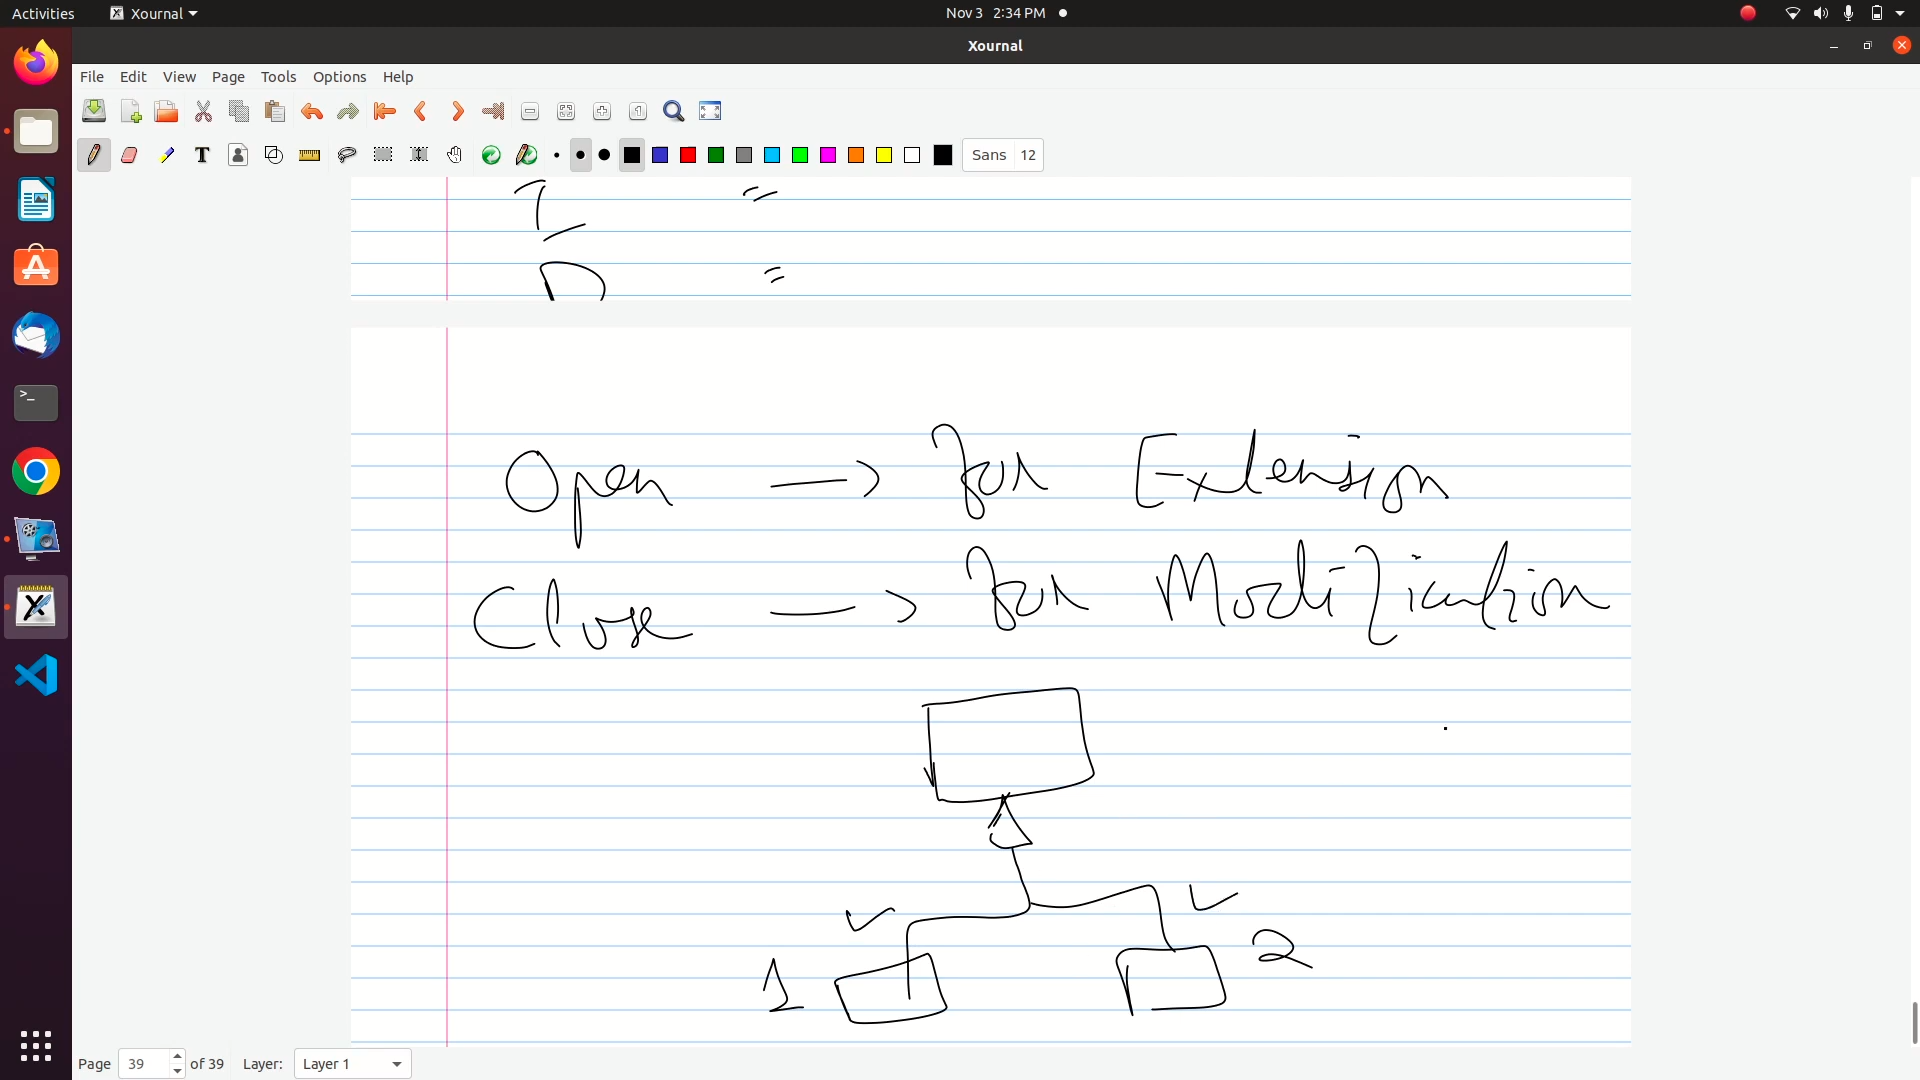 Activities Xournal Nov 3 2:34 PM
Xournal
File Edit View Page Tools Options Help
T Sans 12
I =
D =
Open → for Extension
Close → for Modification
1 2
Page 39 of 39 Layer: Layer 1